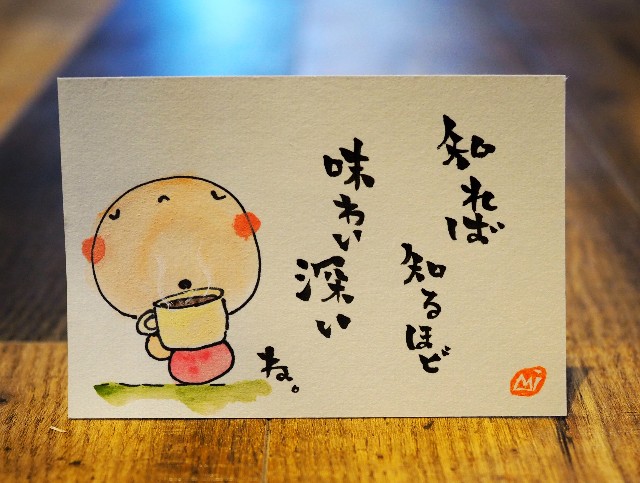 知れば
知るほど
味わい
深い
ね。
Mi